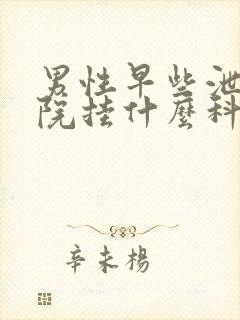 男性早些泄
院挂什麼科
辛未楊